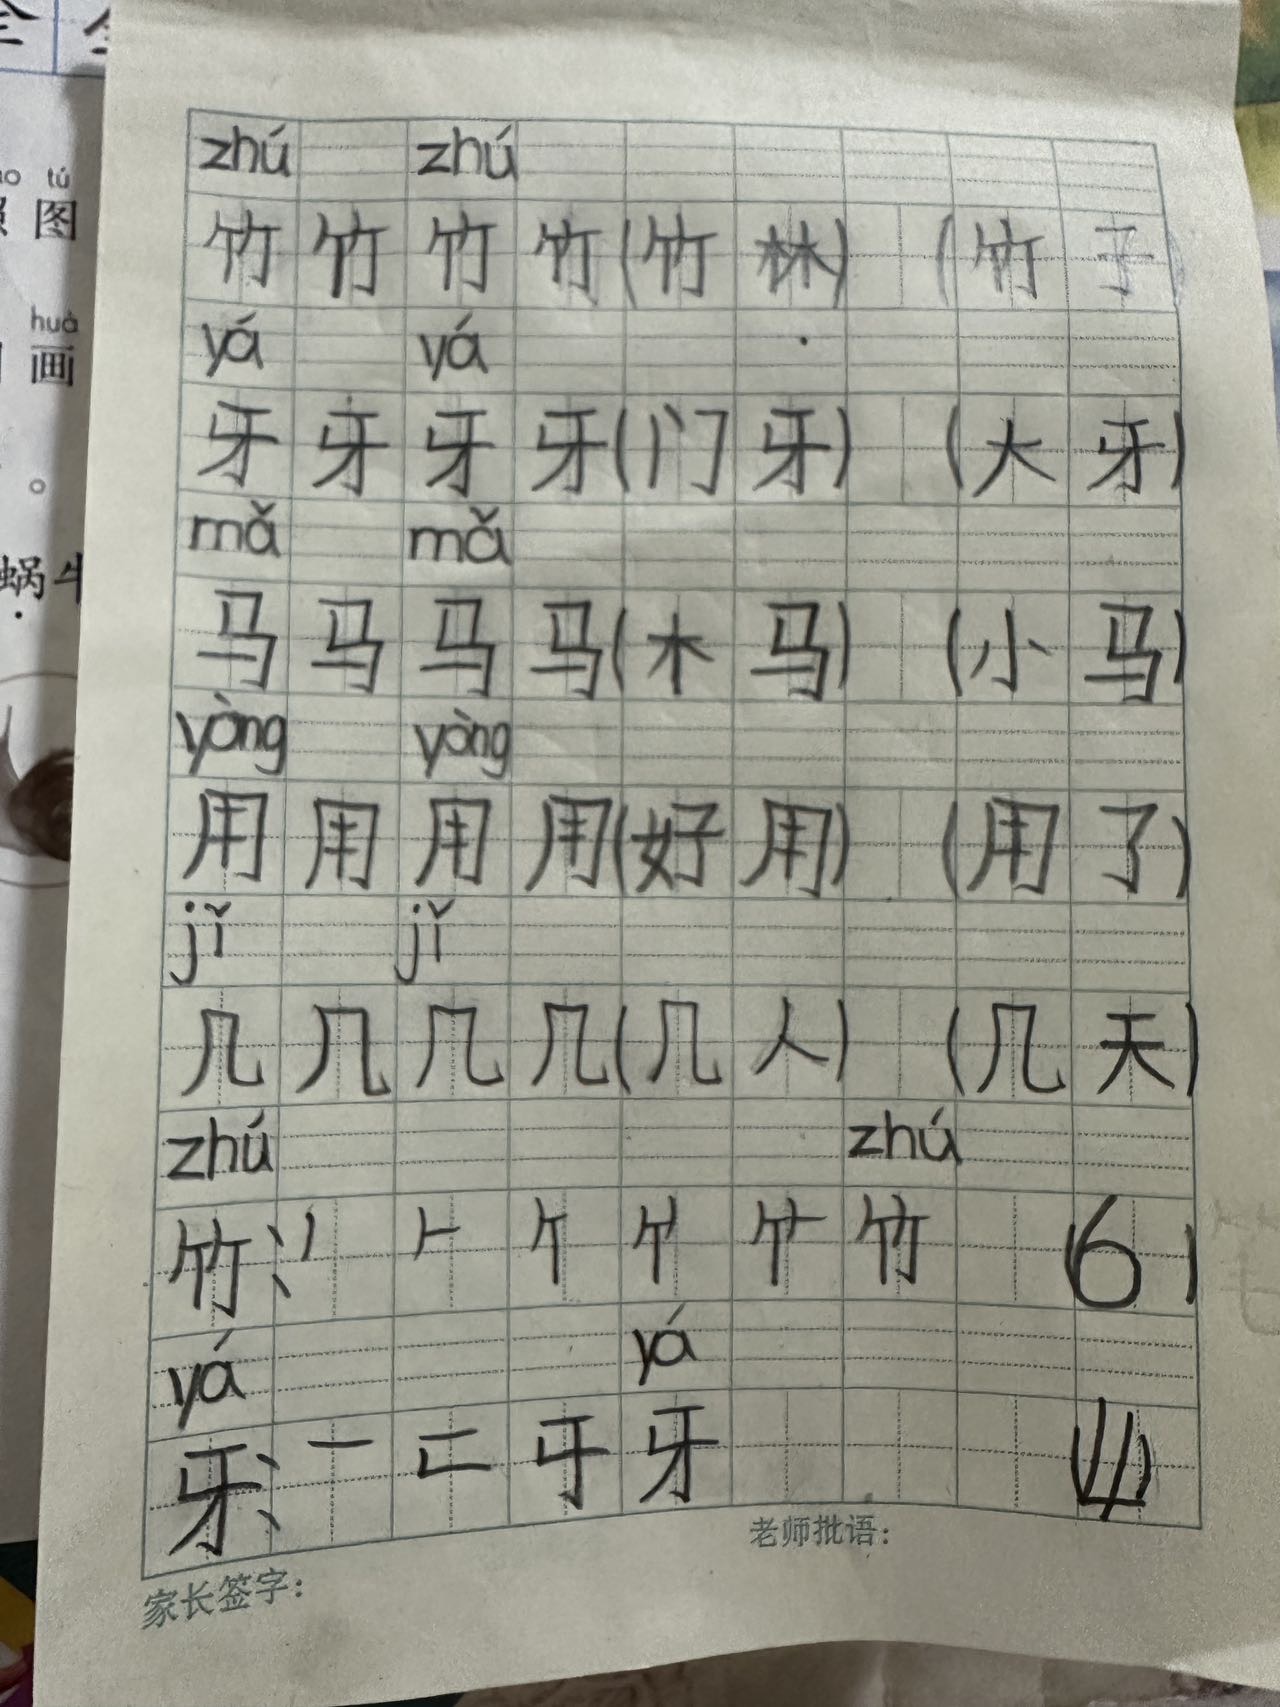 全
zhú zhú
竹 竹 竹 竹 (竹 林) (竹 子)
yá yá
牙 牙 牙 牙 (门 牙) (大 牙)
mǎ mǎ
马 马 马 马 (木 马) (小 马)
yòng yòng
用 用 用 用 (好 用) (用 了)
jǐ jǐ
几 几 几 几 (几 人) (几 天)
zhú zhú
竹: 丿 𠂉 竹 (6)
yá yá
牙: 一 牙 (4)
老师批语：
家长签字：
tú
图
huà
画
。
蜗牛